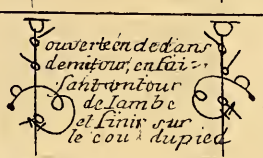 ouverte én dedans
demitour, en fai=
sant un tour
de Iambe
et finir sur
le cou du pied